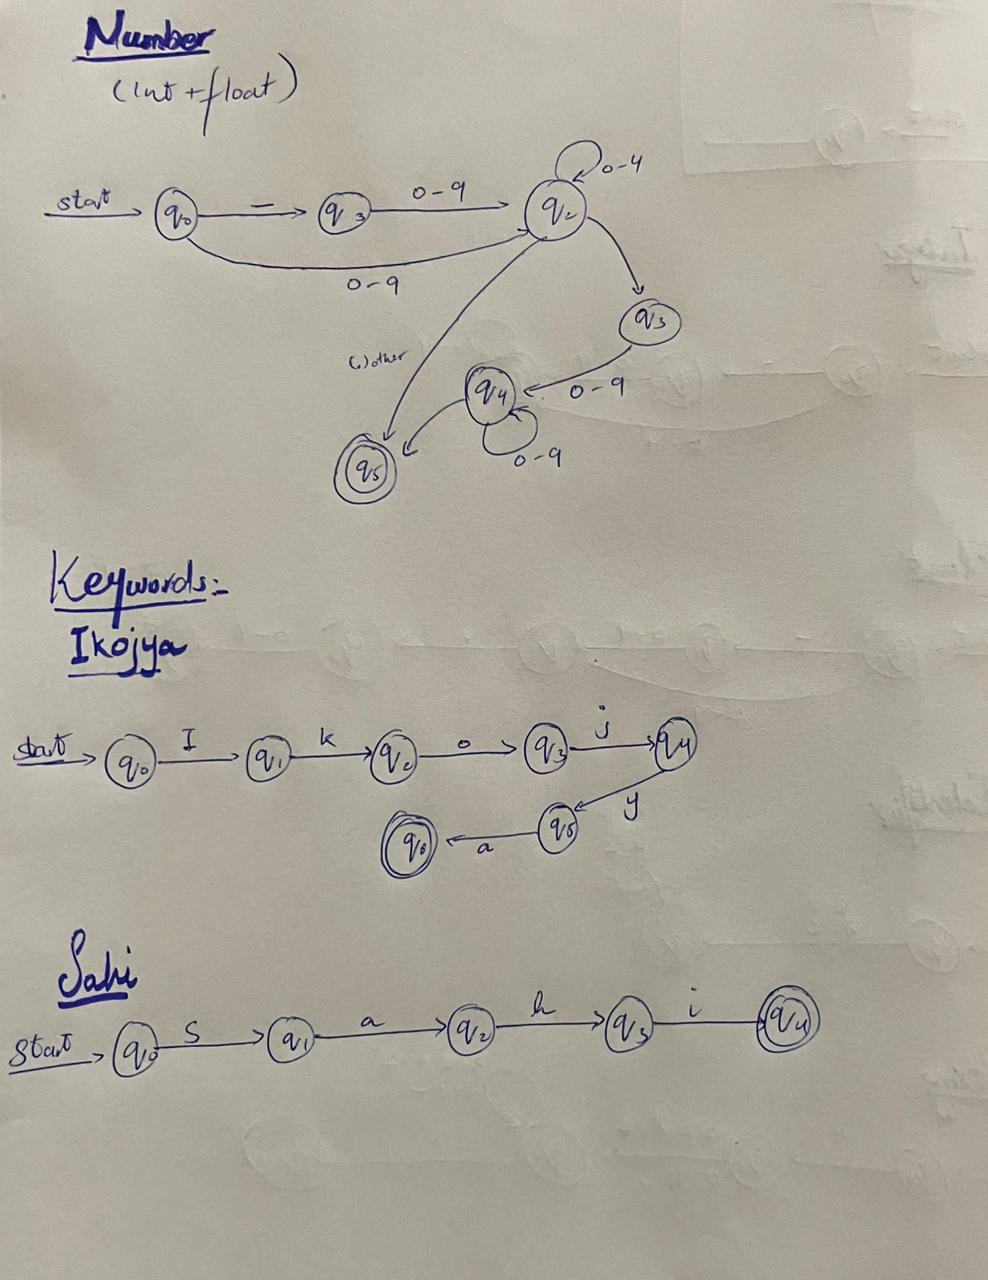 Number
(int + float)
start q0 — q3 0-9 q2 0-4
0-9
q3
(.) other
q4 0-9
0-9
q5
Keywords:-
Ikojya
start q0 I q1 k q2 o q3 j q4
y
q6 a q5
Sahi
start q0 S q1 a q2 h q3 i q4